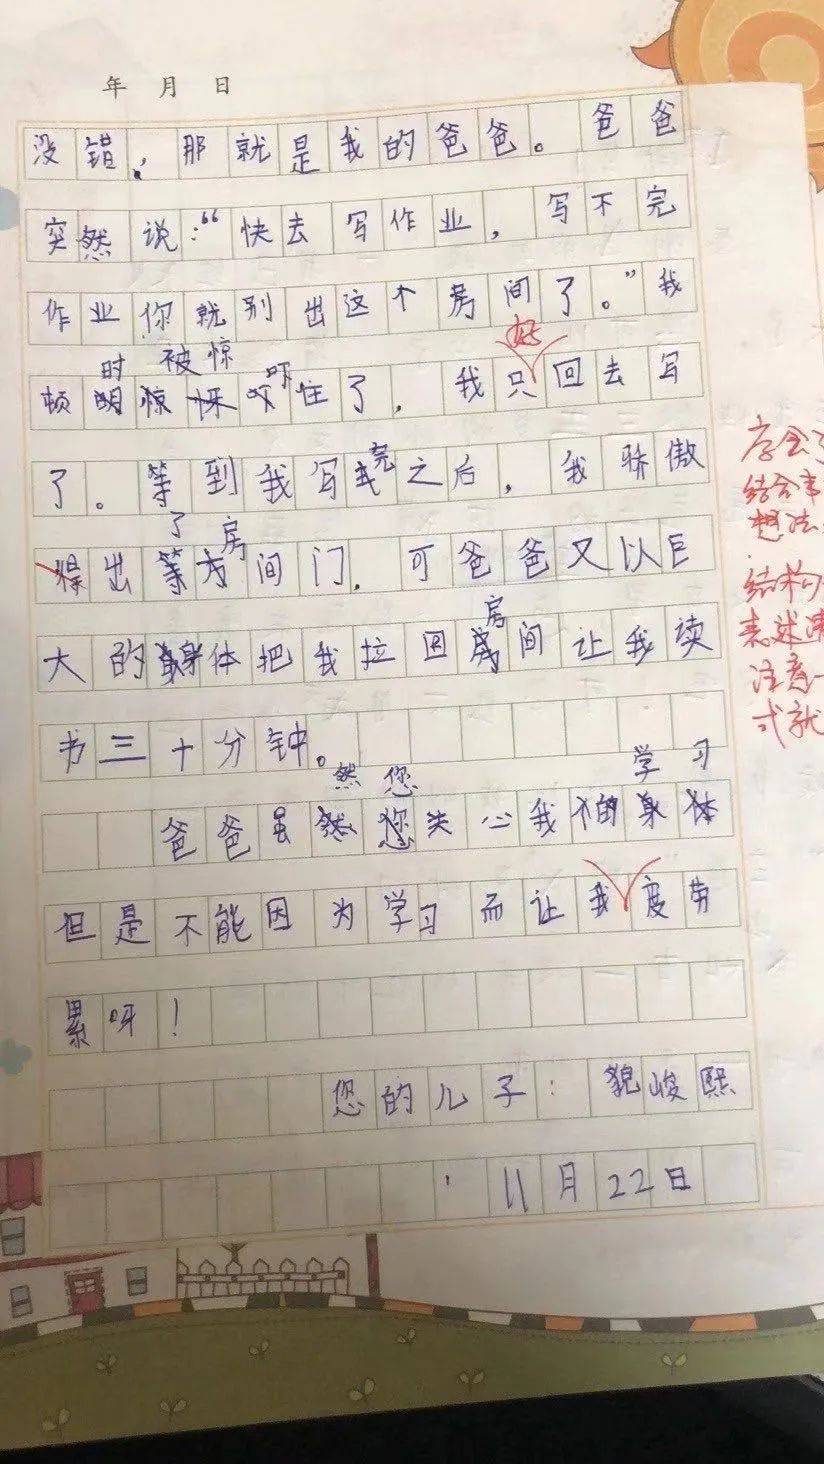 年 月 日
没错,那就是我的爸爸。爸爸
突然说:“快去写作业,写不完
作业你就别出这个房间了。”我
好
时被惊吓
顿住了,我只回去写
完
了。等到我写之后,我骄傲
了房
得出间门,可爸爸又以巨
房
大的身体把我拉回间让我读
书三十分钟。
然您 学习
爸爸虽关心我的
但是不能因为学习而让我疲劳
累呀!
您的儿子:貌峻熙
11月22日
学会了
结合事
想法
结构
表述清
注意
式就